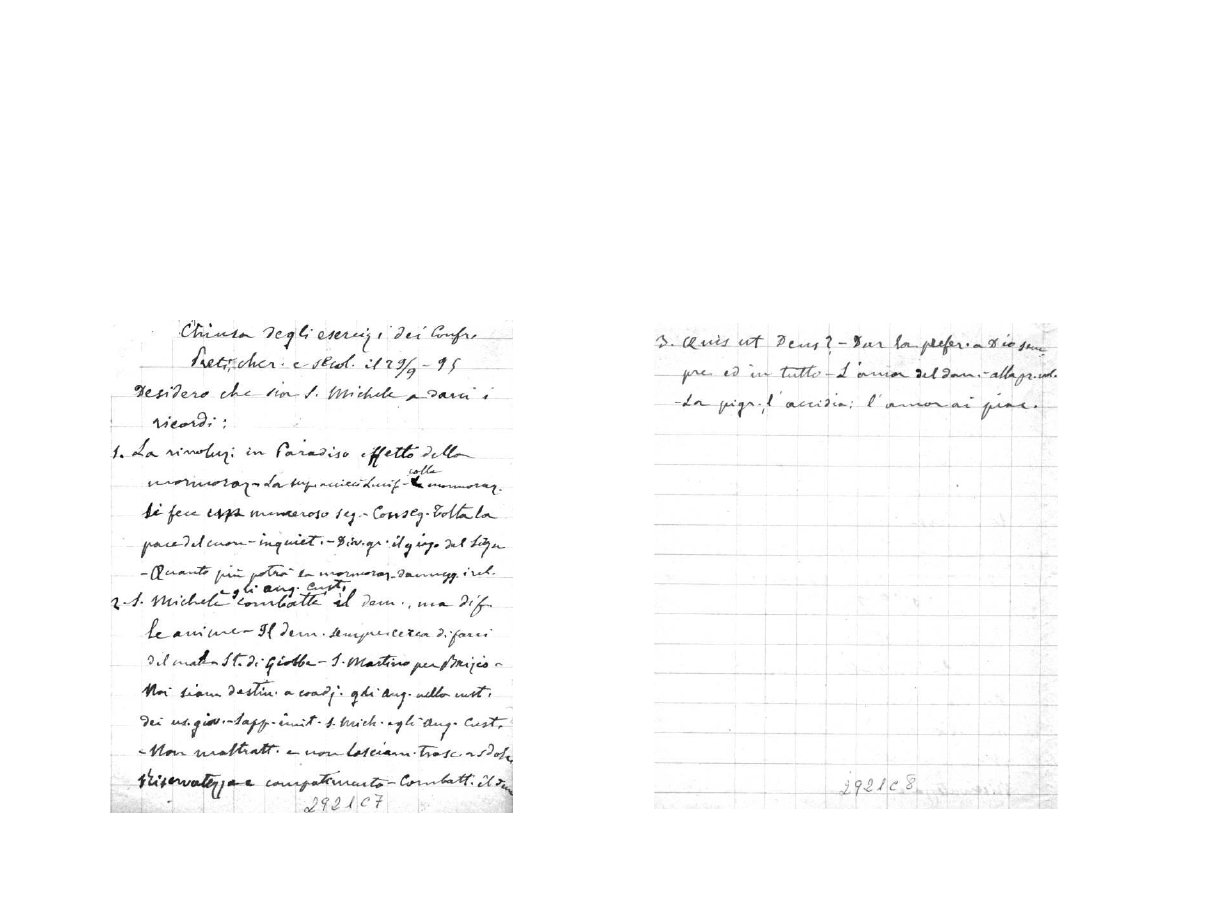 Chiusa degli esercizi dei Confr.
Preti, cher. e secol. il 29/9 - 95
Desidero che sia S. Michele a darci i
ricordi:
1. La rivoluz. in Paradiso effetto della
mormoraz. - La sup. Lucif. - colla mormoraz.
si fece numeroso seg. - Conseg. tolta la
pace del cuore - inquiet. - Div. gr. il giogo del Sign
- Quanto più potrà la mormoraz. danneg. i rel.
2. S. Michele e gli ang. cust. combatte il dem., ma dif.
le anime - Il dem. sempre cerca di farci
del male St. di Giobbe - S. Martino per Brizio -
Noi siam destin. a coadj. gli ang. nella cust.
dei ns. giov. - Sapp. imit. S. Mich. e gli Ang. Cust.
- Non maltratt. e non lasciam. trasc.
Riservatezza e compatimento - Combatt. il dem
2921C7
3. Quis ut Deus? - Dar la prefer. a Dio sem
pre ed in tutto - L'amor del dan. - alla
- La pigr., l'accidia; l'amor ai piac.
2921C8